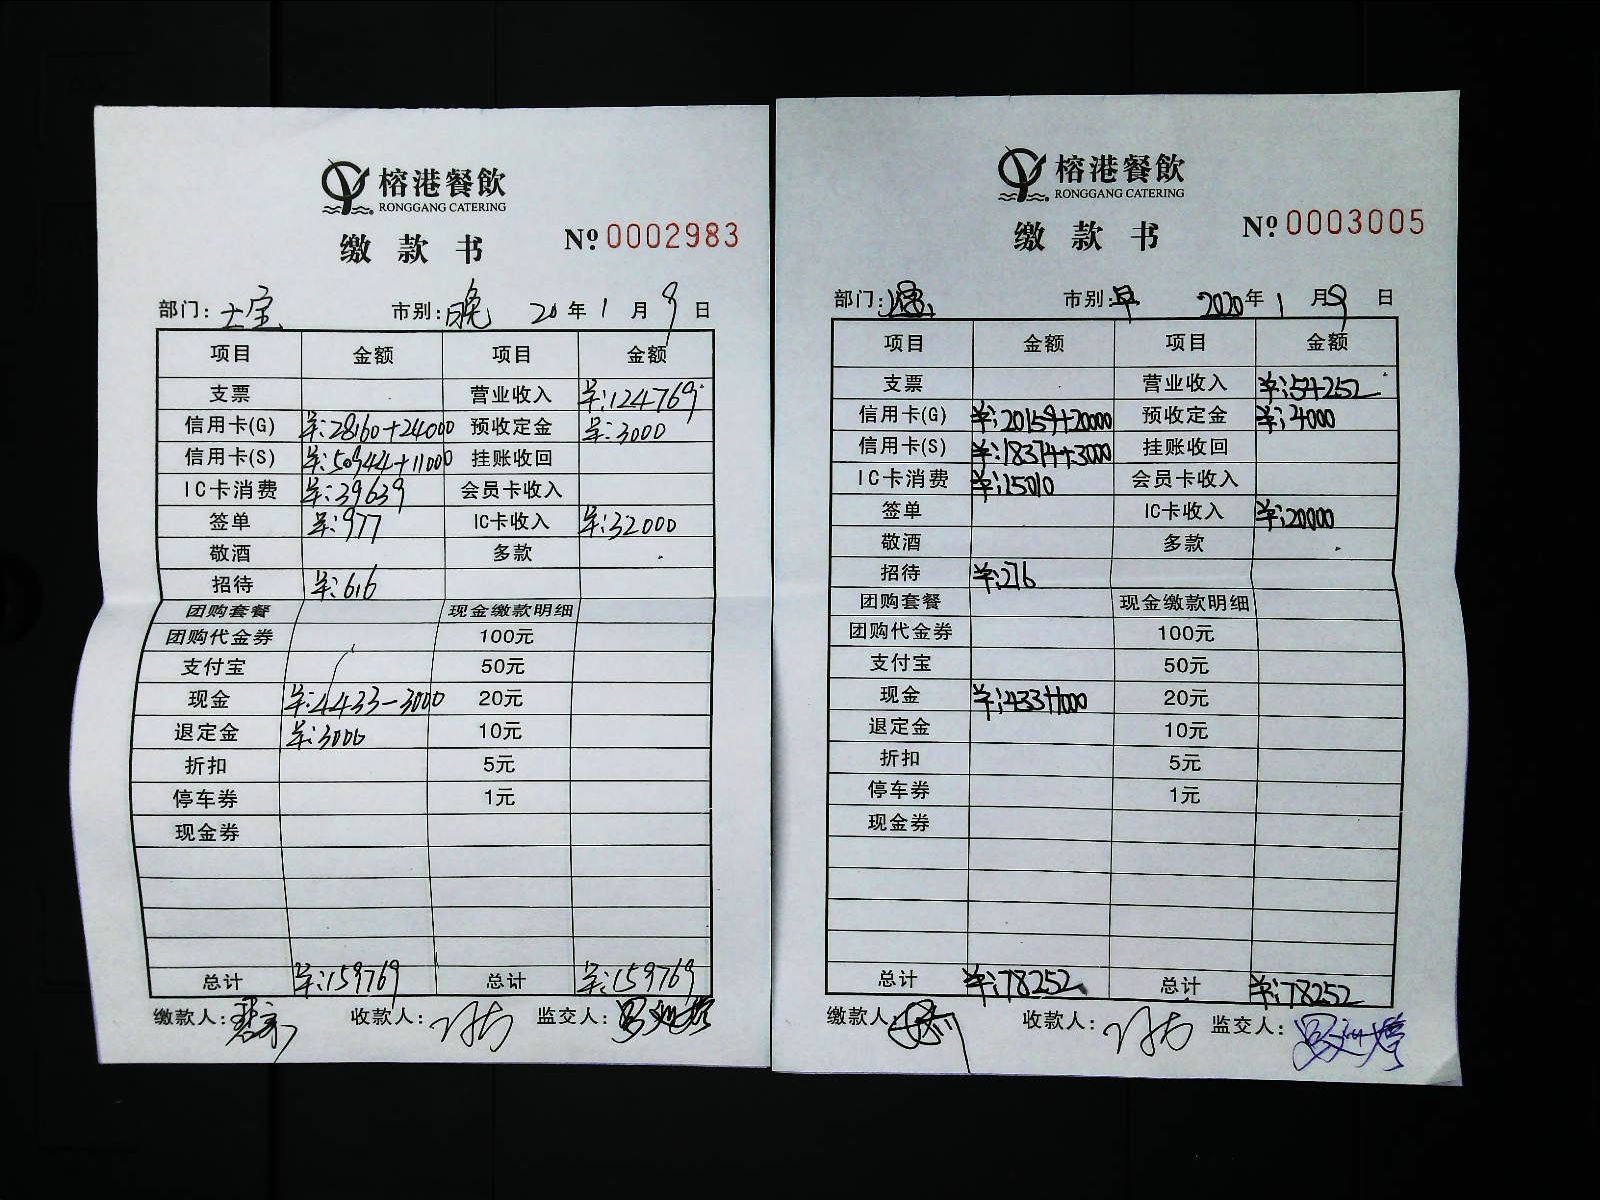 榕港餐飲
RONGGANG CATERING
缴款书 Nº 0002983
部门: 士宝 市别: 晚 20年1月9日
项目 金额 项目 金额
支票 营业收入 ¥:124769
信用卡(G) ¥:28160+24000 预收定金 ¥:3000
信用卡(S) ¥:50944+11000 挂账收回
IC卡消费 ¥:39639 会员卡收入
签单 ¥:977 IC卡收入 ¥:32000
敬酒 多款
招待 ¥:616
团购套餐 现金缴款明细
团购代金券 100元
支付宝 50元
现金 ¥:4433-3000 20元
退定金 ¥:3000 10元
折扣 5元
停车券 1元
现金券
总计 ¥:159769 总计 ¥:159769
缴款人: 收款人: 监交人:
榕港餐飲
RONGGANG CATERING
缴款书 Nº 0003005
部门: 市别: 早 2020年1月9日
项目 金额 项目 金额
支票 营业收入 ¥:54252
信用卡(G) ¥:20159+20000 预收定金 ¥:4000
信用卡(S) ¥:18374+3000 挂账收回
IC卡消费 ¥:15010 会员卡收入
签单 IC卡收入 ¥:20000
敬酒 多款
招待 ¥:276
团购套餐 现金缴款明细
团购代金券 100元
支付宝 50元
现金 ¥:433+1000 20元
退定金 10元
折扣 5元
停车券 1元
现金券
总计 ¥:78252 总计 ¥:78252
缴款人: 收款人: 监交人: